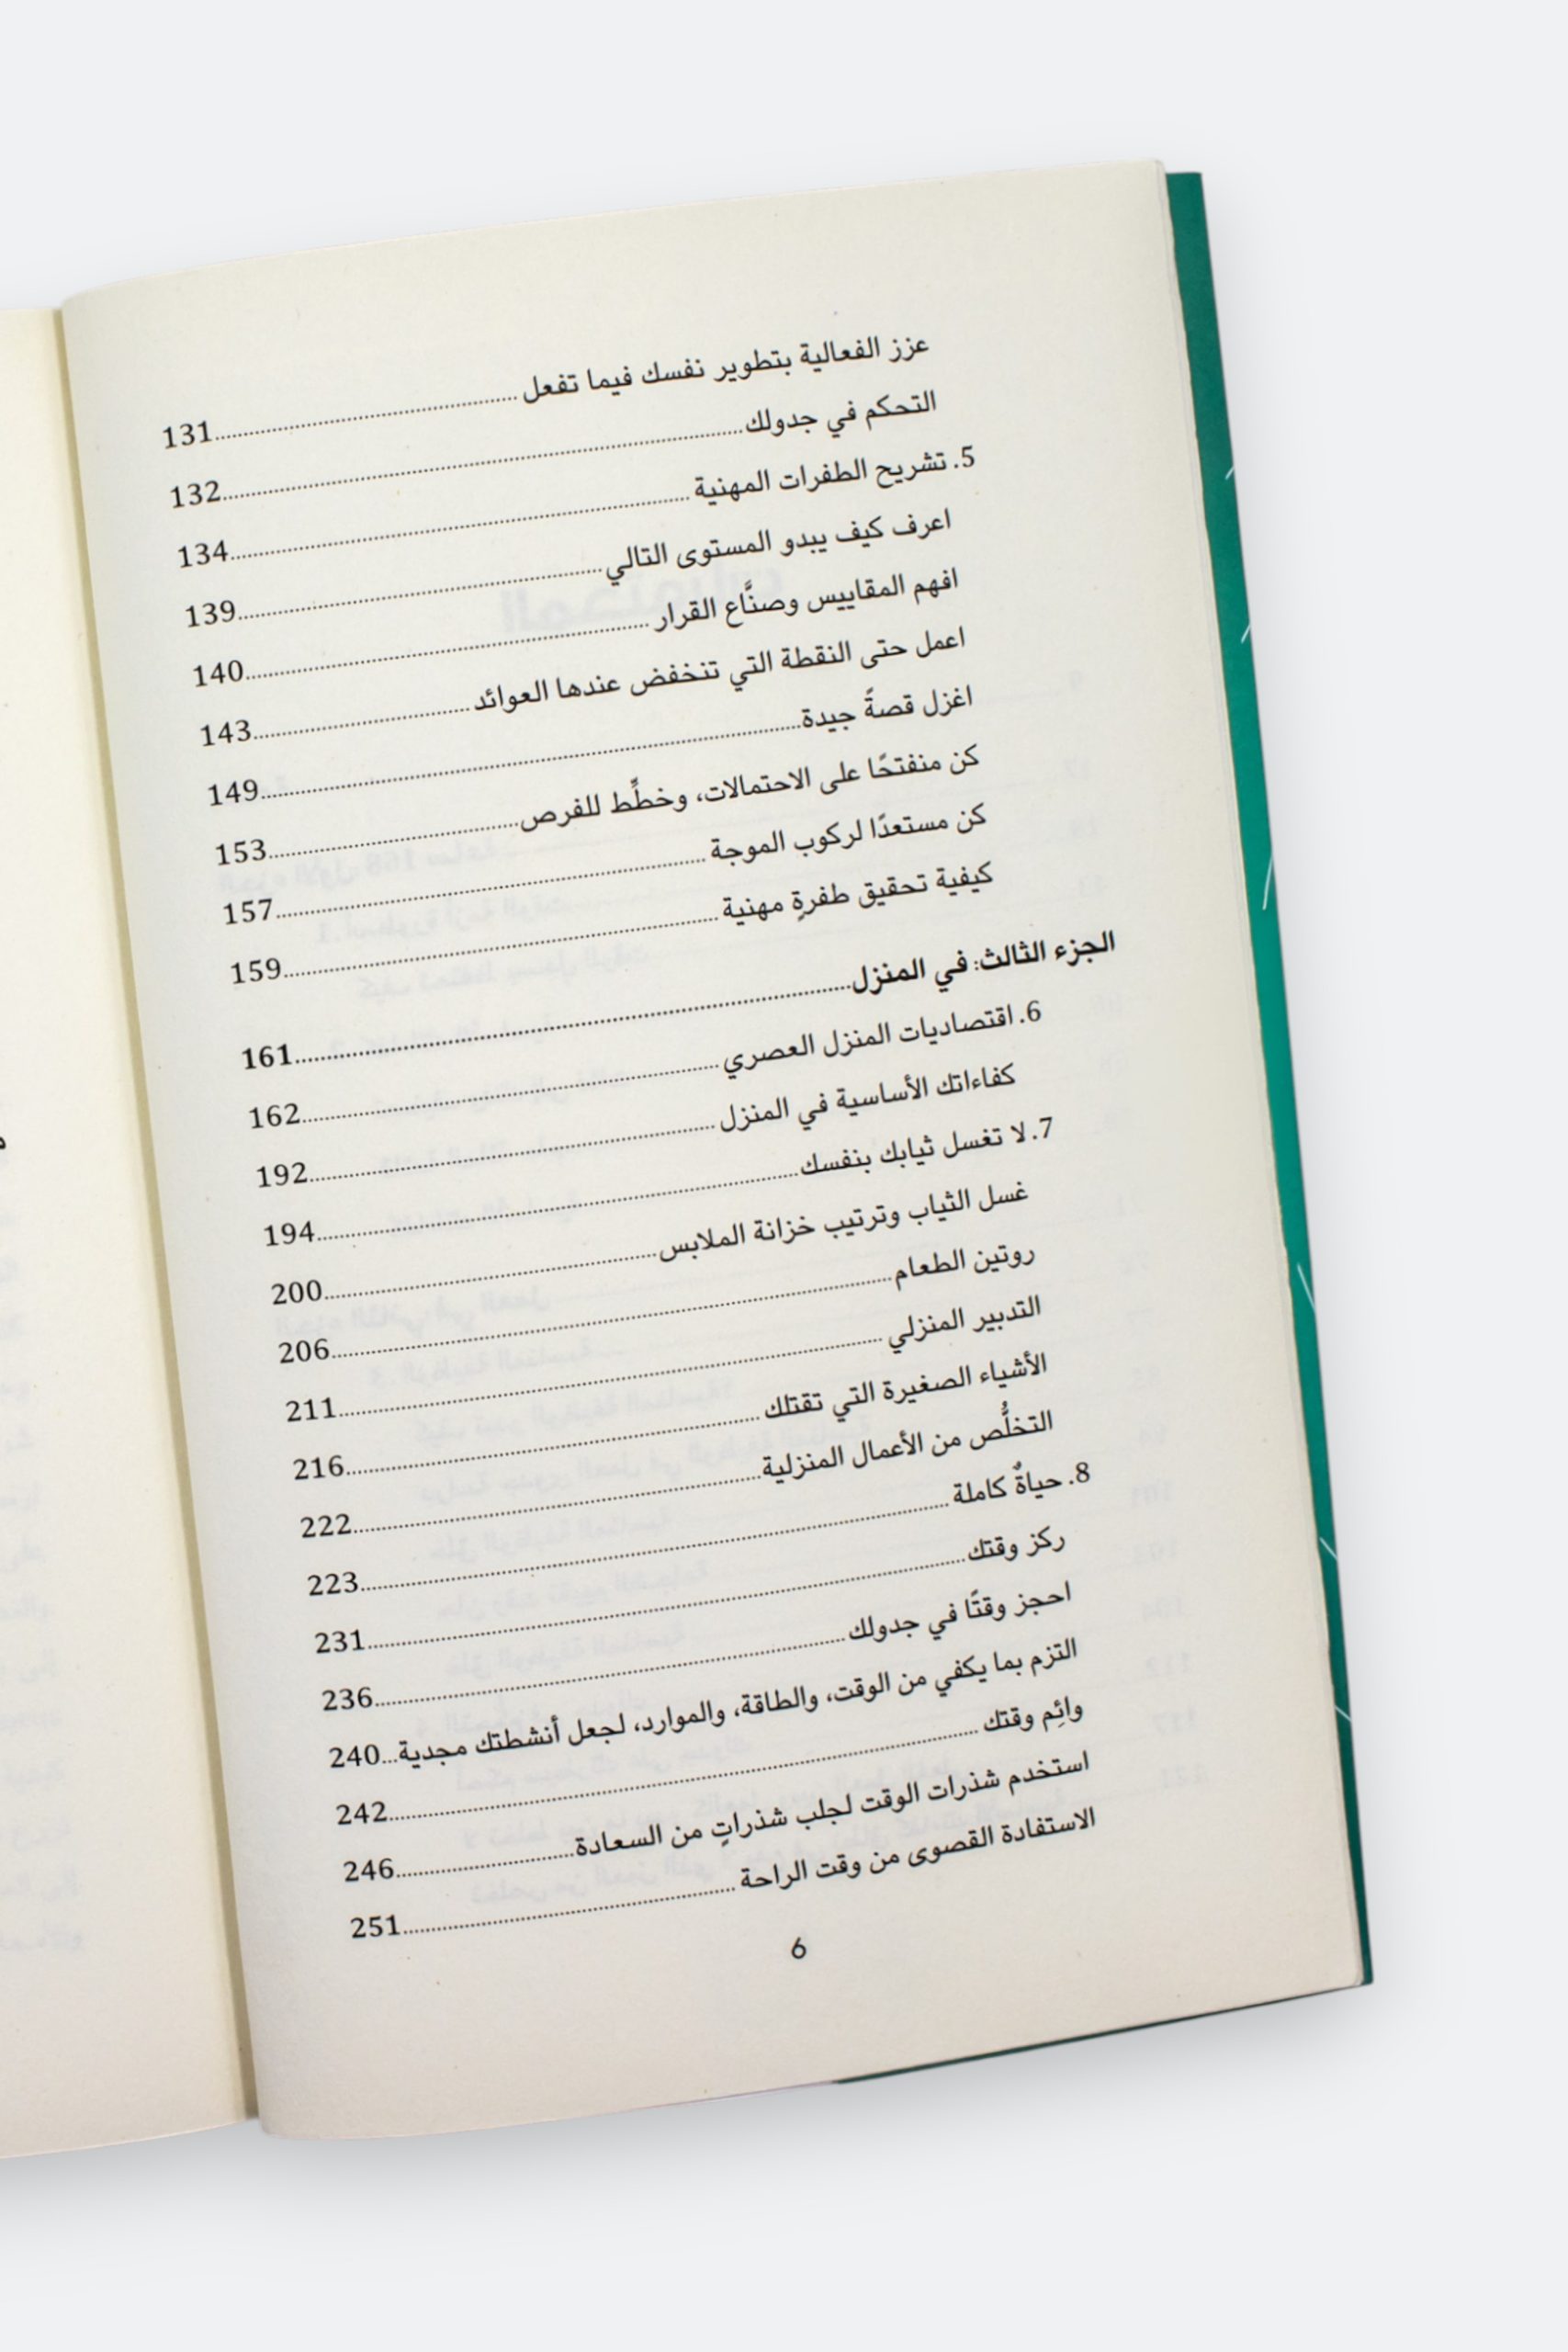 عزز الفعالية بتطوير نفسك فيما تفعل......131
التحكم في جدولك......132
5. تشريح الطفرات المهنية......134
اعرف كيف يبدو المستوى التالي......139
افهم المقاييس وصنَّاع القرار......140
اعمل حتى النقطة التي تنخفض عندها العوائد......143
اغزل قصةً جيدة......149
كن منفتحًا على الاحتمالات، وخطِّط للفرص......153
كن مستعدًا لركوب الموجة......157
كيفية تحقيق طفرةٍ مهنية......159
الجزء الثالث: في المنزل......161
6. اقتصاديات المنزل العصري......162
كفاءاتك الأساسية في المنزل......192
7. لا تغسل ثيابك بنفسك......194
غسل الثياب وترتيب خزانة الملابس......200
روتين الطعام......206
التدبير المنزلي......211
الأشياء الصغيرة التي تقتلك......216
التخلُّص من الأعمال المنزلية......222
8. حياةٌ كاملة......223
ركز وقتك......231
احجز وقتًا في جدولك......236
التزم بما يكفي من الوقت، والطاقة، والموارد، لجعل أنشطتك مجدية...240
وائِم وقتك......242
استخدم شذرات الوقت لجلب شذراتٍ من السعادة......246
الاستفادة القصوى من وقت الراحة......251
6